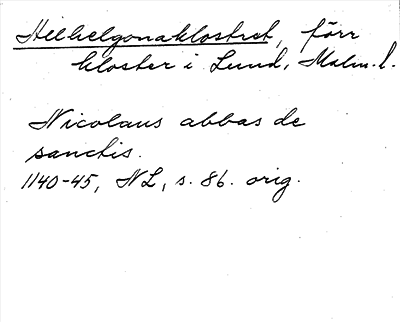 Helhelgonaklostret, förr
kloster i Lund, Malm.l.
Nicolaus abbas de
sanctis.
1140-45, NL, s. 86. orig.